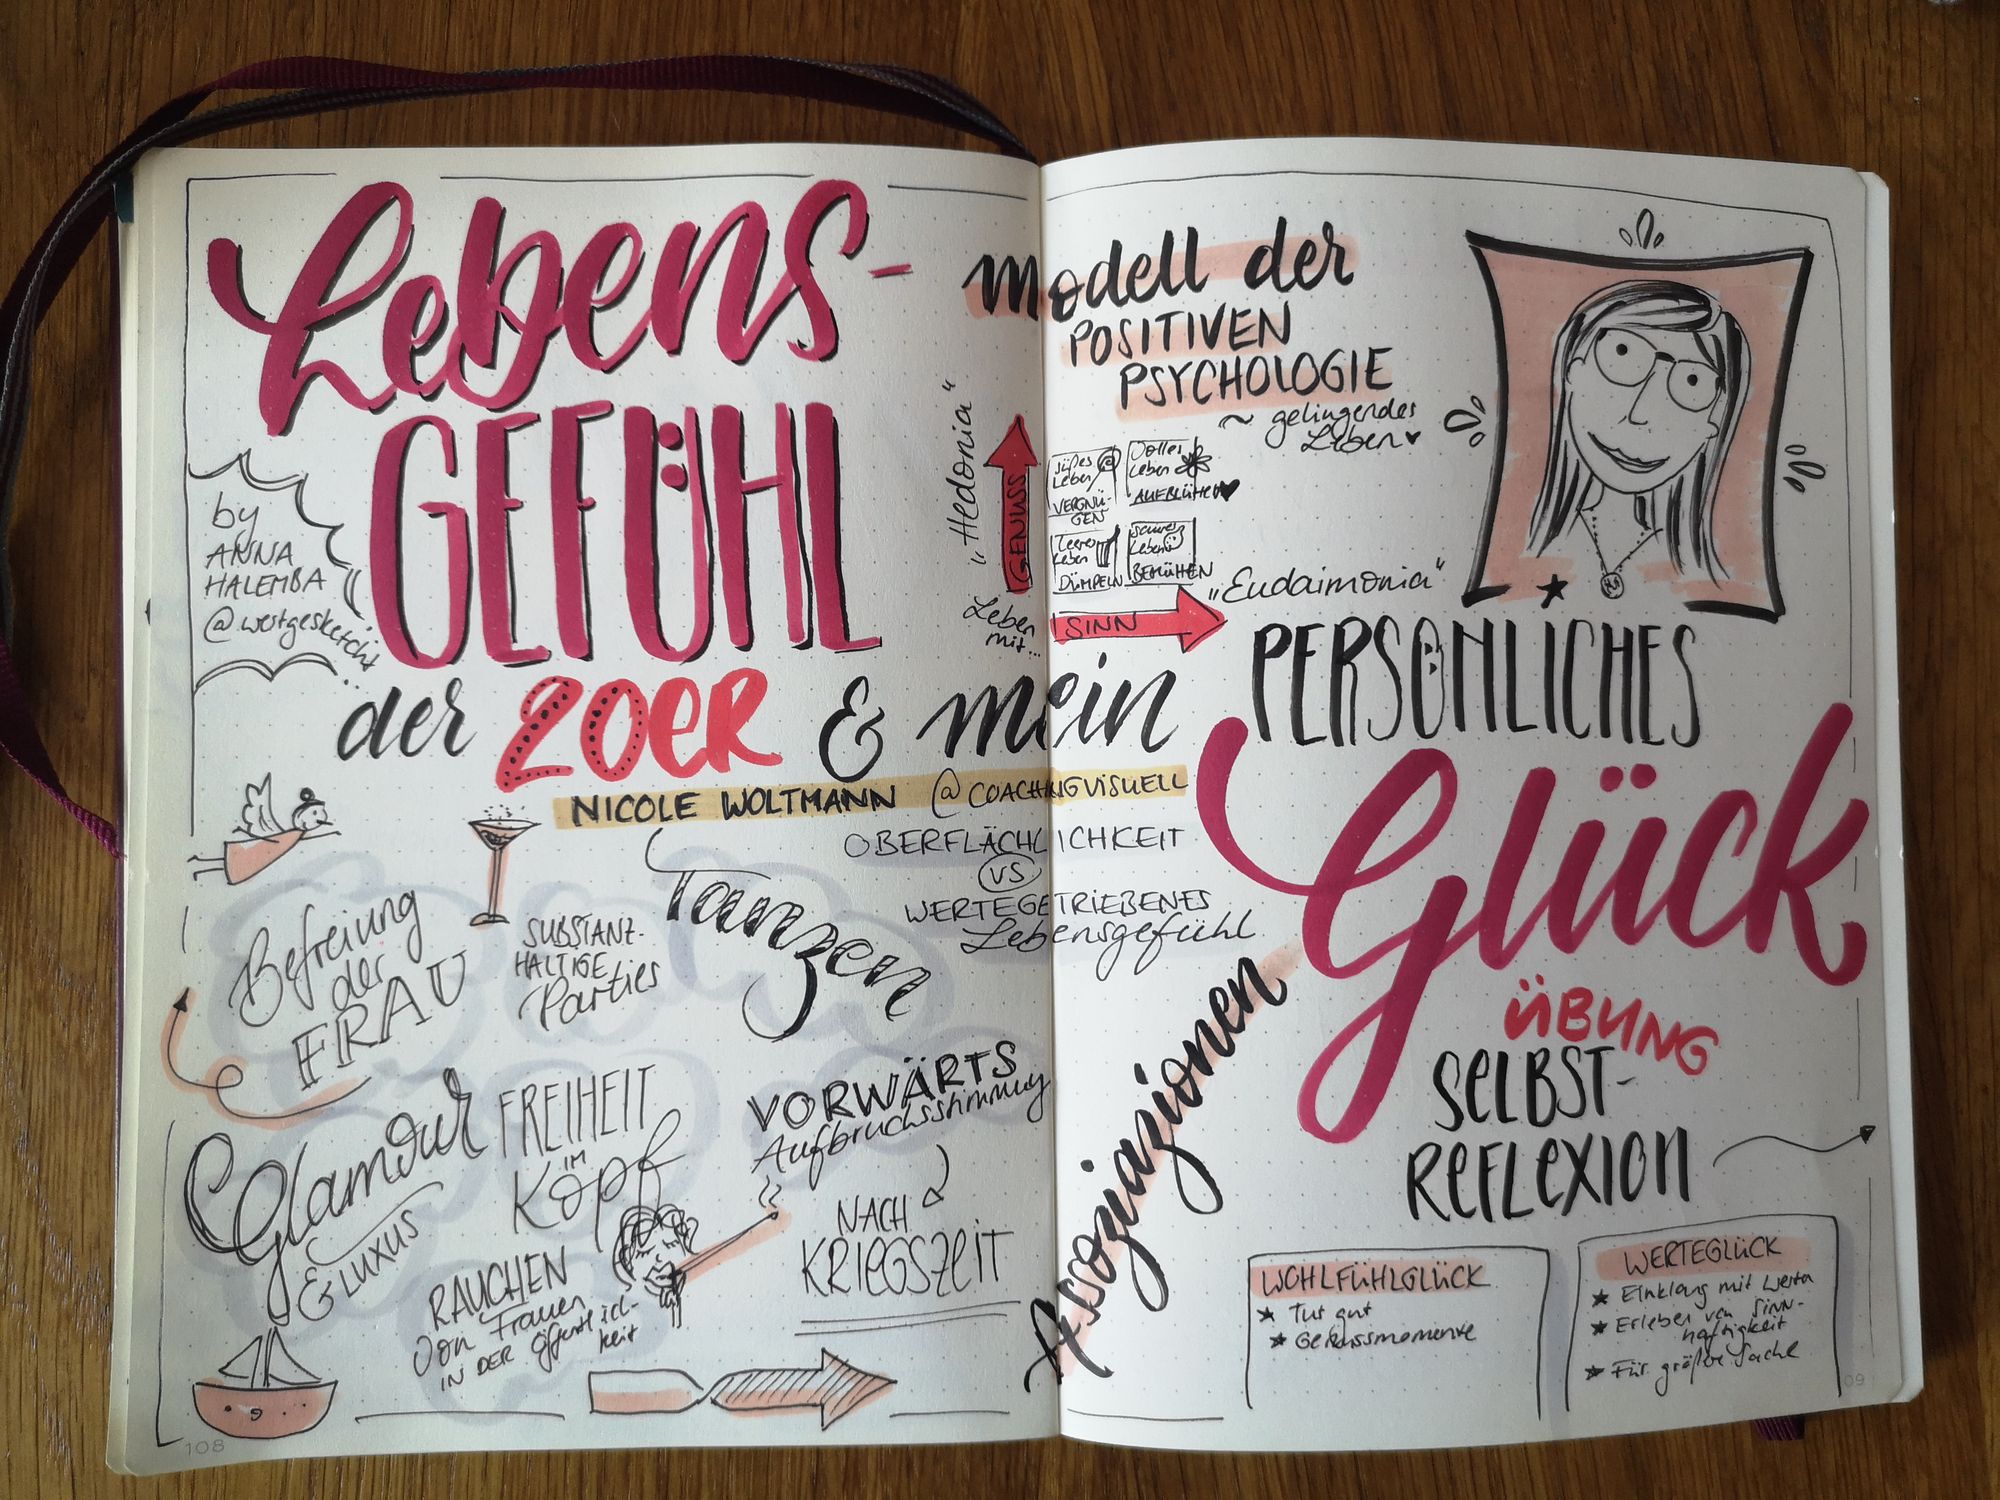 Lebens-
GEFÜHL
by
ANNA
HALEMBA
der 20ER & mein
PERSÖNLICHES
Glück
NICOLE WOLTMANN @COACHINGVISUELL
Modell der
POSITIVEN
PSYCHOLOGIE
~ gelingendes
Leben
„Hedonia“
GENUSS
Leben
mit...
süßes
Leben
VERGNÜ-
GEN
Volles
Leben
AUFBLÜHEN
Leeres
Leben
DÜMPELN
saures
Leben
BEMÜHEN
SINN
„Eudaimonia“
OBERFLÄCHLICHKEIT
VS
WERTEGETRIEBENES
Lebensgefühl
Tanzen
Befreiung
der
FRAU
SUBSTANZ-
HALTIGE
Parties
Glamour
& LUXUS
FREIHEIT
IM
Kopf
VORWÄRTS
Aufbruchsstimmung
NACH
KRIEGSZEIT
RAUCHEN
Von Frauen
IN DER Öffentlich-
keit
108
Assoziazionen
ÜBUNG
SELBST-
REFLEXION
WOHLFÜHLGLÜCK
Tut gut
Genussmomente
WERTEGLÜCK
Einklang mit Werten
Erleben von SINN-
haftigkeit
Für größere Sache